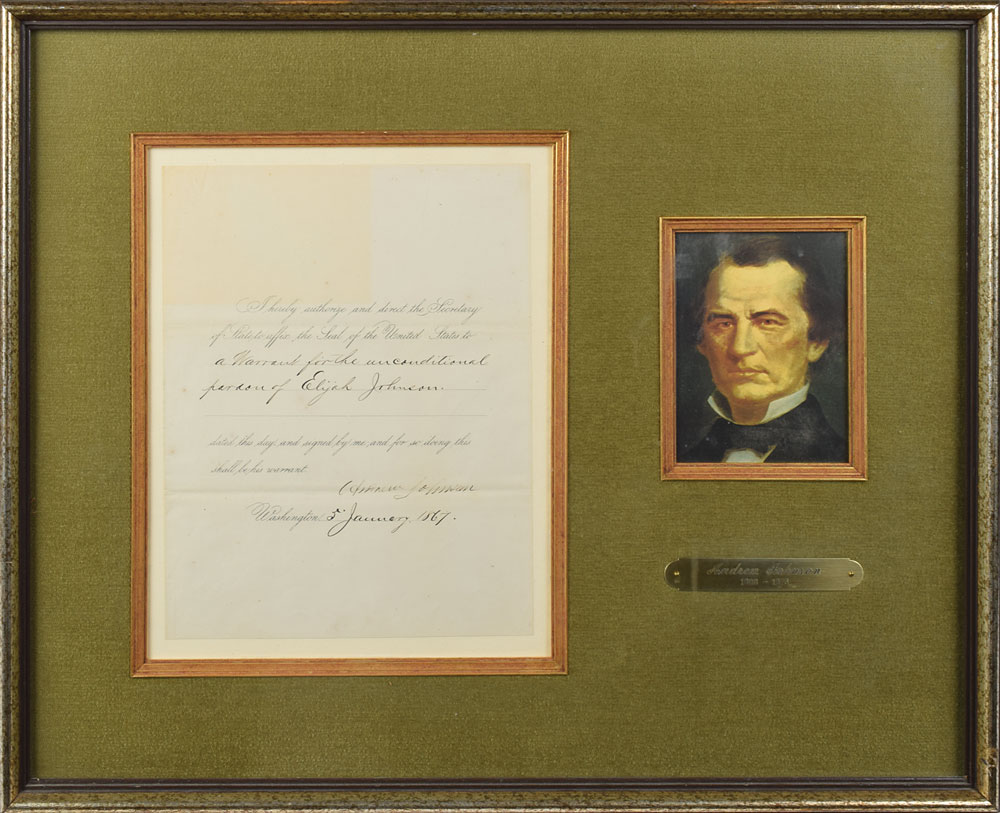 I hereby authorize and direct the Secretary
of State to affix the Seal of the United States to
a Warrant for the unconditional
pardon of Elijah Johnson.
dated this day, and signed by me, and for so doing this
shall be his warrant.
Andrew Johnson
Washington, 5" January, 1867.
Andrew Johnson